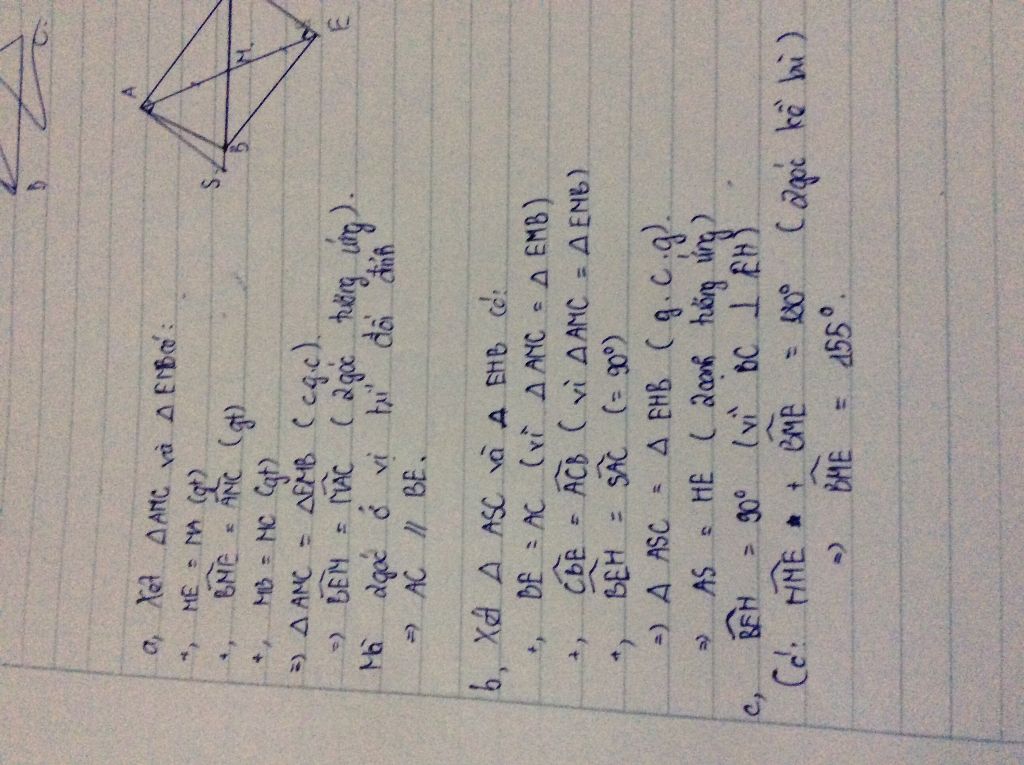 D
C
A
M
E
S
B
a, Xét ΔAMC và ΔEMB có:
+, ME = MA (gt)
+, BME = AMC (gt)
+, MB = MC (gt)
=) ΔAMC = ΔEMB (c.g.c).
=) BEM = MAC (2góc tương ứng).
Mà 2góc ở vị trí đối đỉnh
=) AC // BE.
b, Xét Δ ASC và Δ EHB có:
+, BE = AC (vì Δ AMC = Δ EMB)
+, CBE = ACB (vì Δ AMC = Δ EMB)
+, BEH = SAC (= 90°)
=) Δ ASC = Δ EHB (g.c.g).
=) AS = HE (2cạnh tương ứng)
c, BEH = 90° (vì BC ⊥ EH)
Có: HME + BME = 180° (2góc kề bù)
=) BME = 155°.